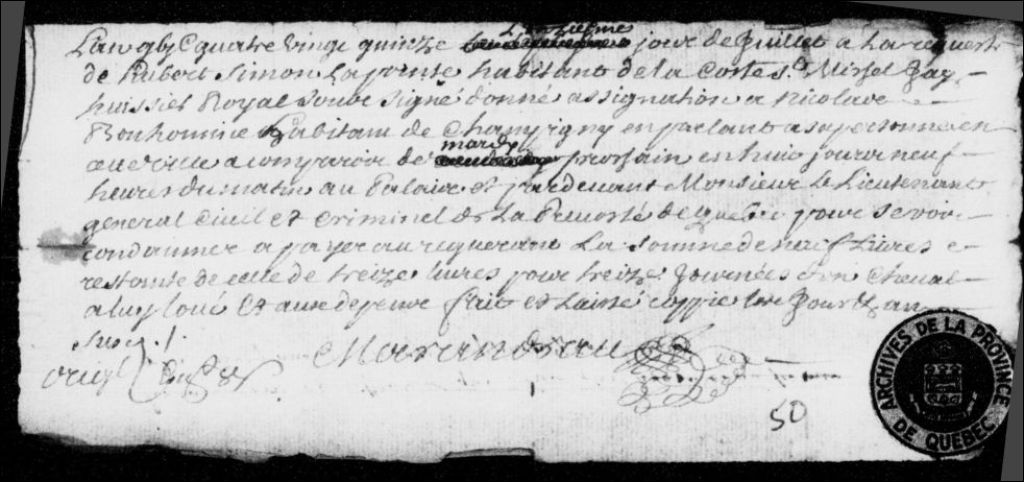 L'onziesme
Lan gbj C quatre vingt quinze jour de Juillet a la requeste
de Hubert Simon Lapointe habitant de la Coste St. Michel Jay
huissier Royal sousigné donné assignation a Nicolas
Bonhomme habitant de Champigny en parlant a sa personne en
mardy
a comparoir de prochain en huit jours neuf
heures du matin au Palais et pardevant Monsieur le Lieutenant
general Civil et Criminel de la Prevosté de pour se voir
condamner a payer au requerant la somme de neuf livres
restante de celle de treize livres pour treize Journées d'un Cheval
a luy loué Et aux depens fait et laissé coppie les Jour & an
susd. /.
Marandeau
50
ARCHIVES DE LA PROVINCE
DE QUÉBEC